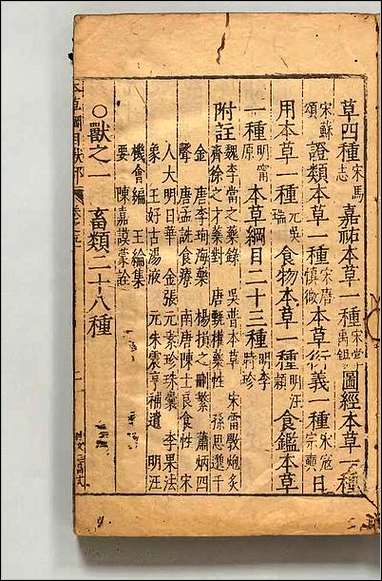 草四種宋馬志 嘉祐本草一種宋掌禹錫 圖經本草一種
宋蘇頌 證類本草一種宋唐慎微 本草衍義一種宋寇宗奭 日
用本草一種元吳瑞 食物本草一種明汪穎 食鑑本草
一種明甯原 本草綱目二十三種明李時珍
附註魏李當之藥錄 吳普本草 宋雷斅炮炙
齊徐之才藥對 唐甄權藥性 孫思邈千
金 唐李珣海藥 楊損之刪繁 蕭炳四
聲 唐孟詵食療 南唐陳士良食性 宋
人大明日華 金張元素珍珠囊 李杲法
象 王好古湯液 元朱震亨補遺 明汪
機會編 王綸集
要 陳嘉謨蒙詮
○獸之一 畜類二十八種
本草綱目獸部